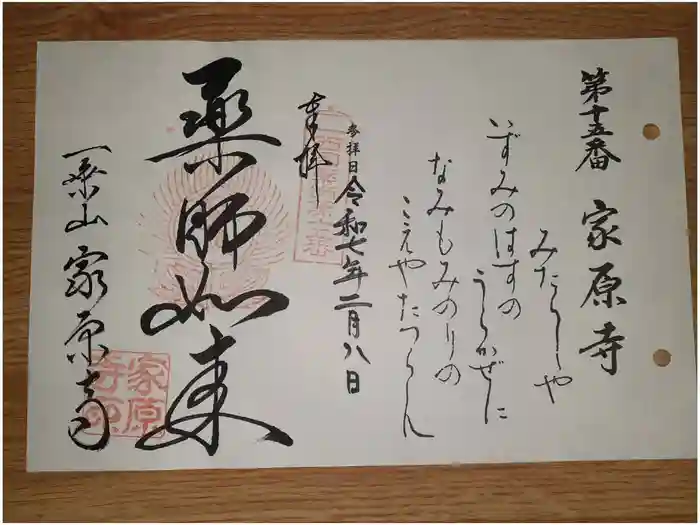 第十五番 家原寺
みたらしや
いずみのはすの
うらかぜに
なみもみのりの
こえやたつらん
参拝日 令和七年二月八日
奉拝
薬師如来
一乗山 家原寺
家原
寺印